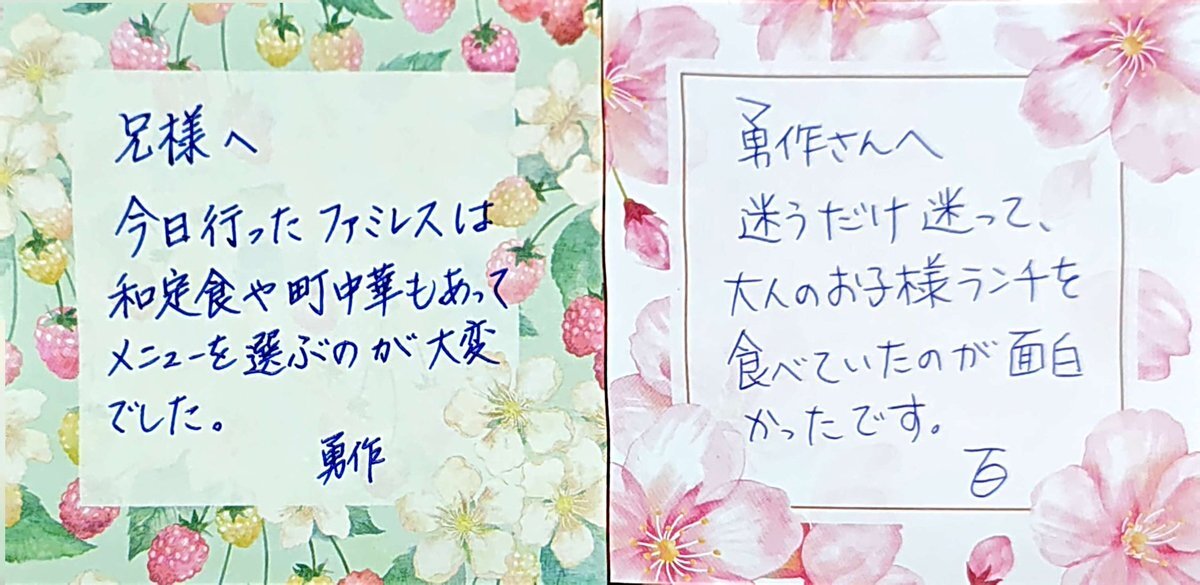 兄様へ
今日行ったファミレスは
和定食や町中華もあって
メニューを選ぶのが大変
でした。
勇作
勇作さんへ
迷うだけ迷って、
大人のお子様ランチを
食べていたのが面白
かったです。
百